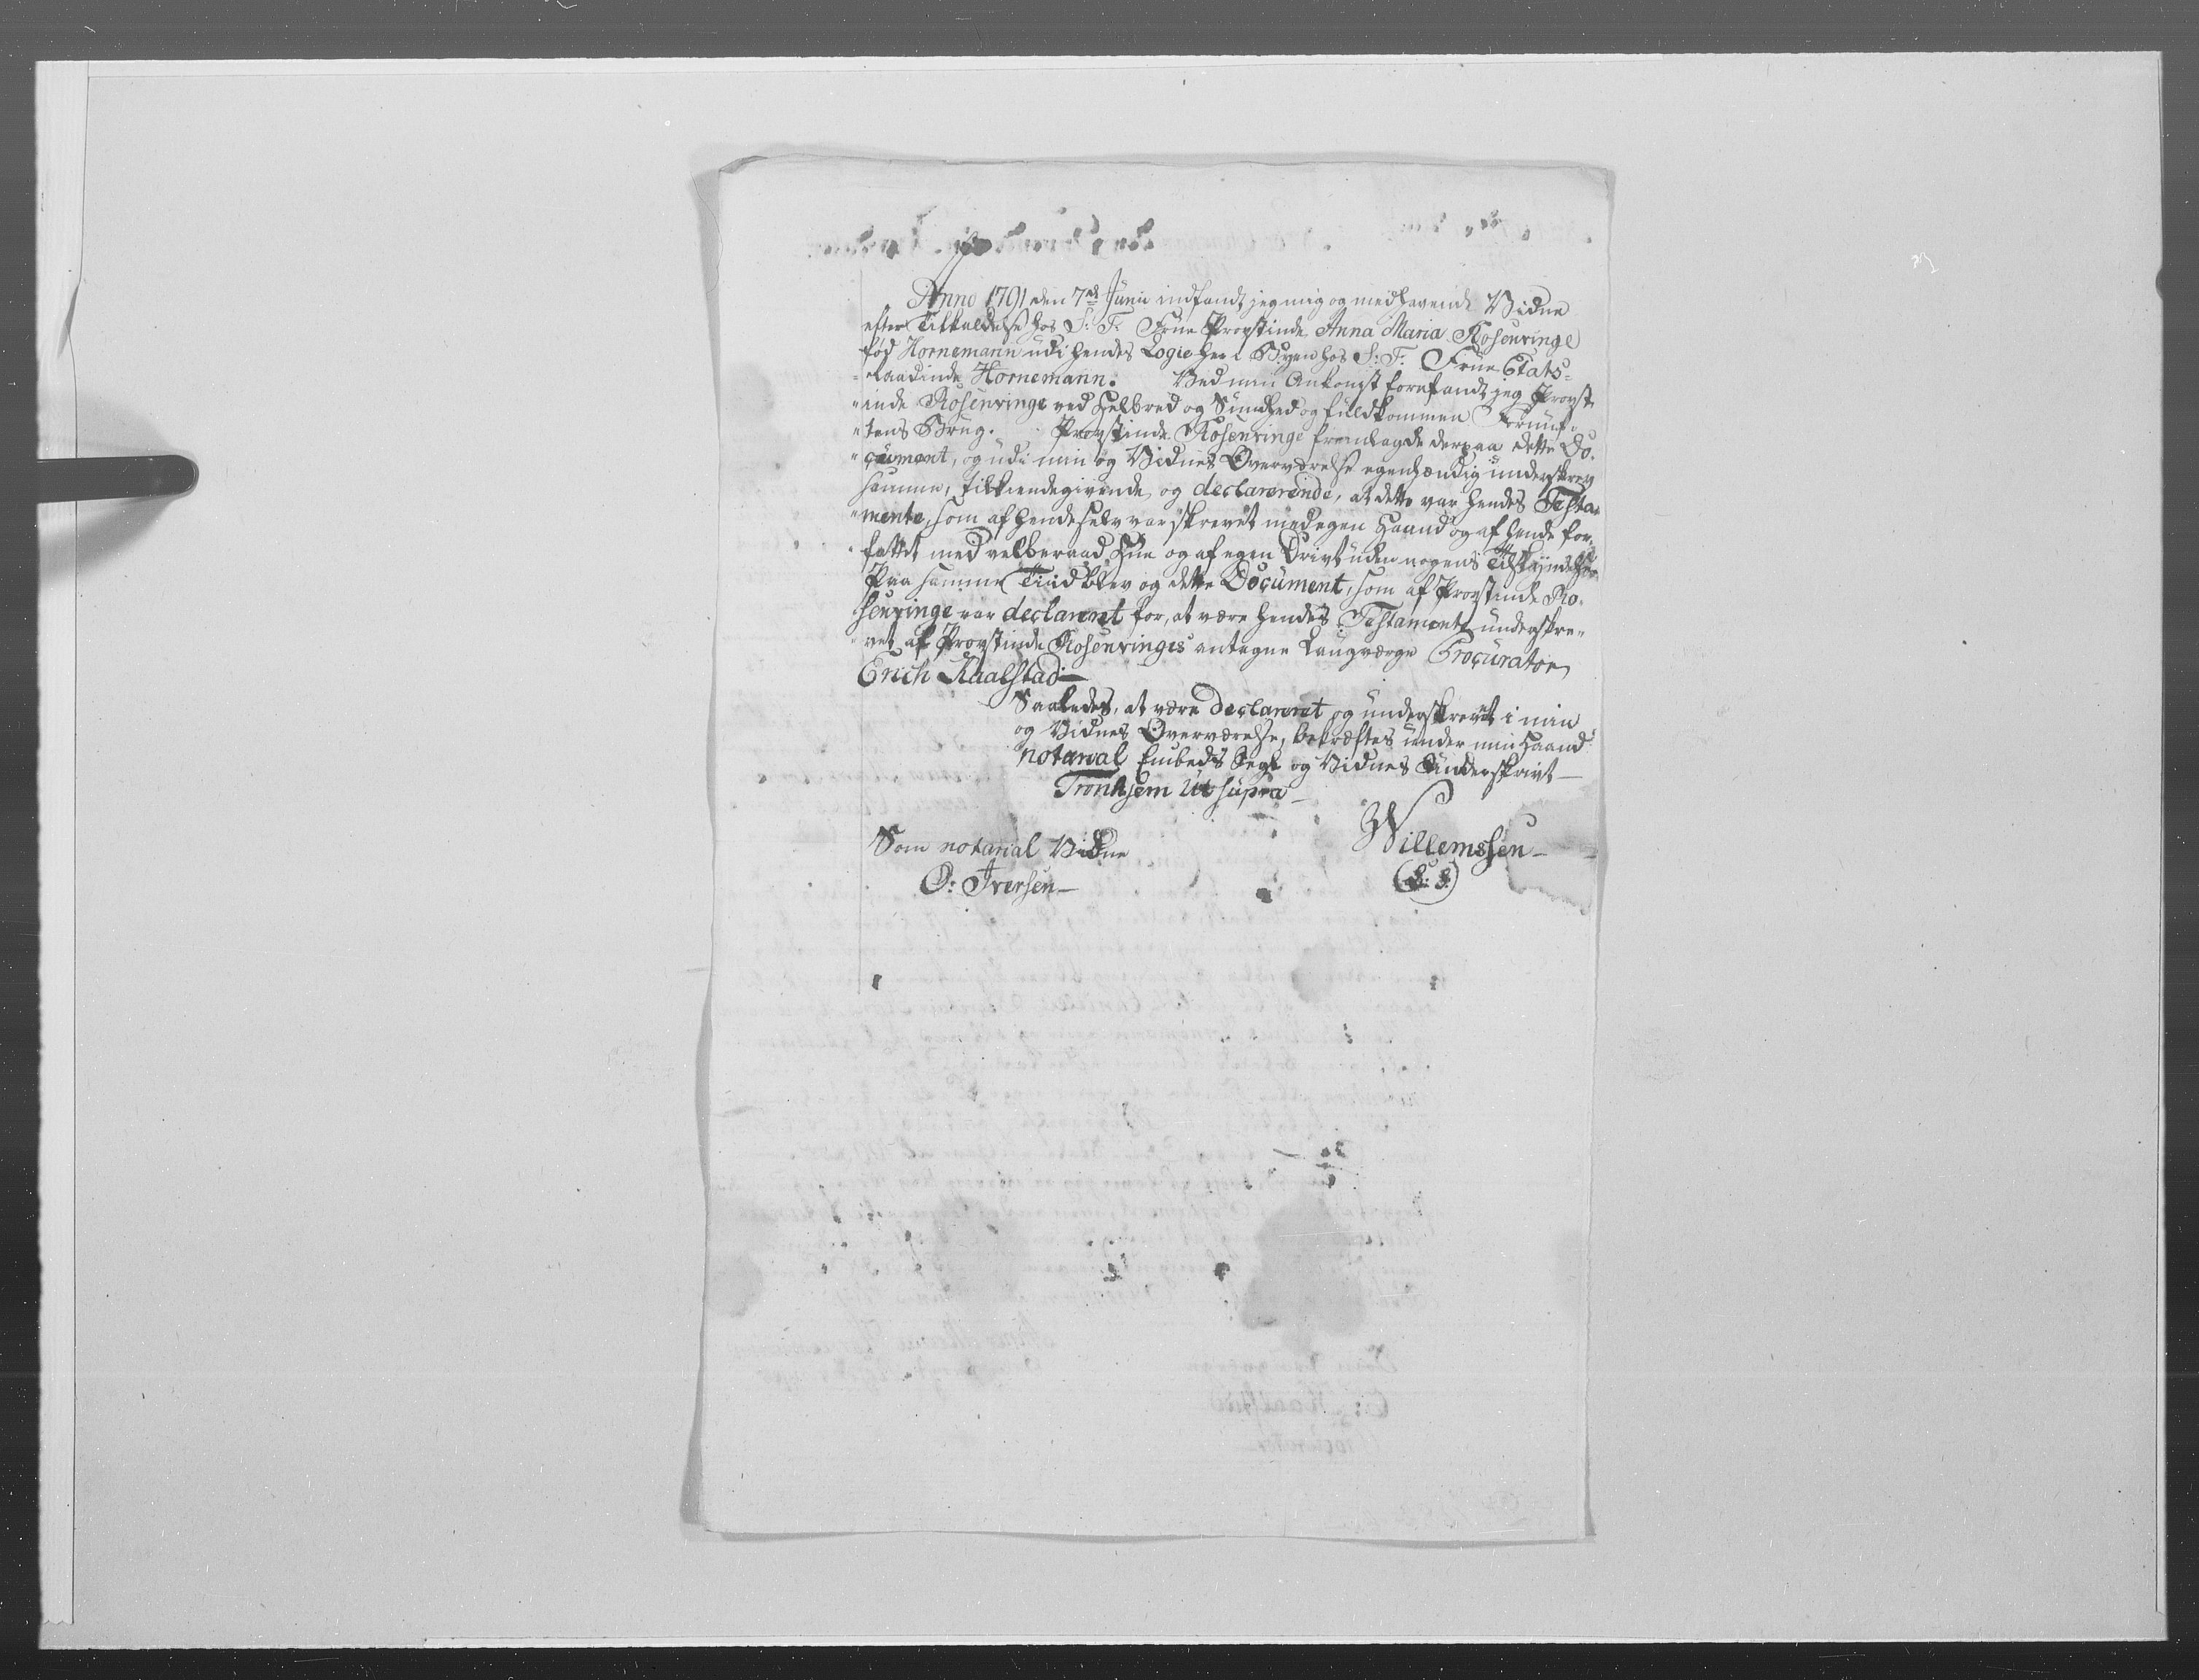 Anno 1791 den 7de Junii indfandt jeg mig og medhavende Vidne
efter Tilkaldelse hos S: T: Frue Provstinde Anna Maria Rosenvinge
fød Hornemann udi hendes Logie her i Byen hos S: T: Frue Etats-
"raadinde Hornemann. Ved min Ankomst forefandt jeg Provst-
"inde Rosenvinge ved Helbred og Sundhed og fuldkommen Fornuf-
"tens Brug. Provstinde Rosenvinge fremlagde derpaa dette Do-
"cument, og udi min og Vidnes Overværelse egenhændig underskrev
samme, tilkiendegivende og declarerende, at dette var hendes Testa-
"mente, som af hende selv var skrevet med egen Haand og af hende for-
"fattet med velberaad Hue og af egen Drivt uden nogens Tilskyndelse
Paa samme Tiid blev og dette Document, som af Provstinde Ro-
senvinge var declareret for, at være hendes Testament underskre-
"vet af Provstinde Rosenvinges antagne Laugværge Procurator
Erich Kaalstad
Saaledes, at være declareret og underskrevet i min
og Vidnes Overværelse, bekræftes under min Haand
notarial Embeds Segl og Vidnes Underskrivt
Tronhjem Ut supra
Willemssen
Som notarial Vidne
(L: S:)
O: Iversen